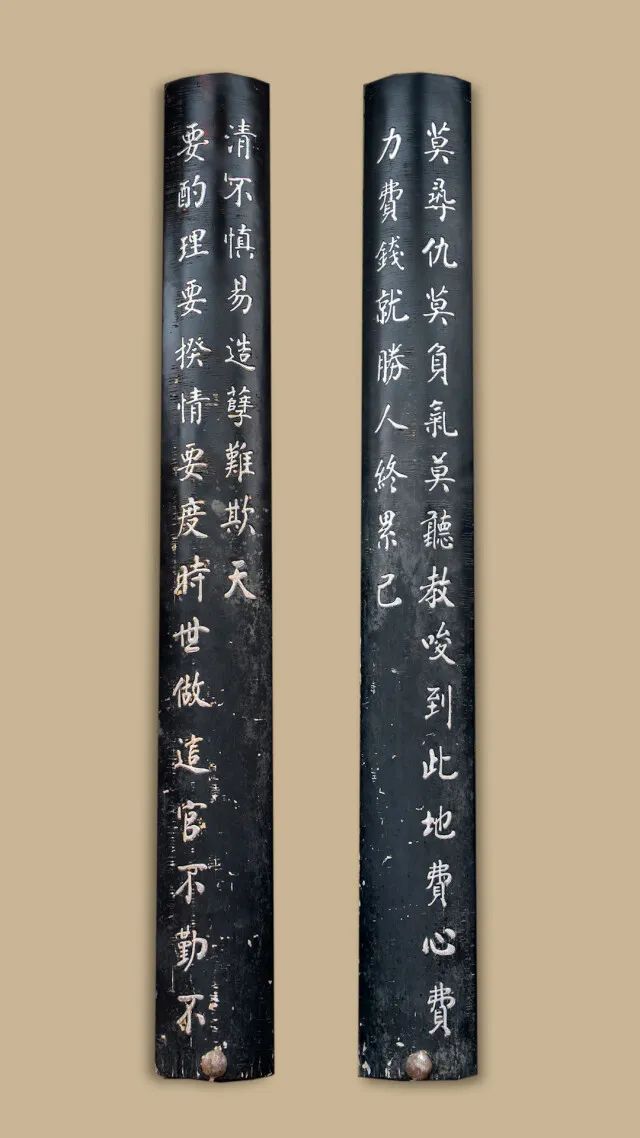 莫尋仇莫負氣莫聽教唆到此地費心費
力費錢就勝人終累己
要酌理要揆情要度時世做這官不勤不
清不慎易造孽難欺天